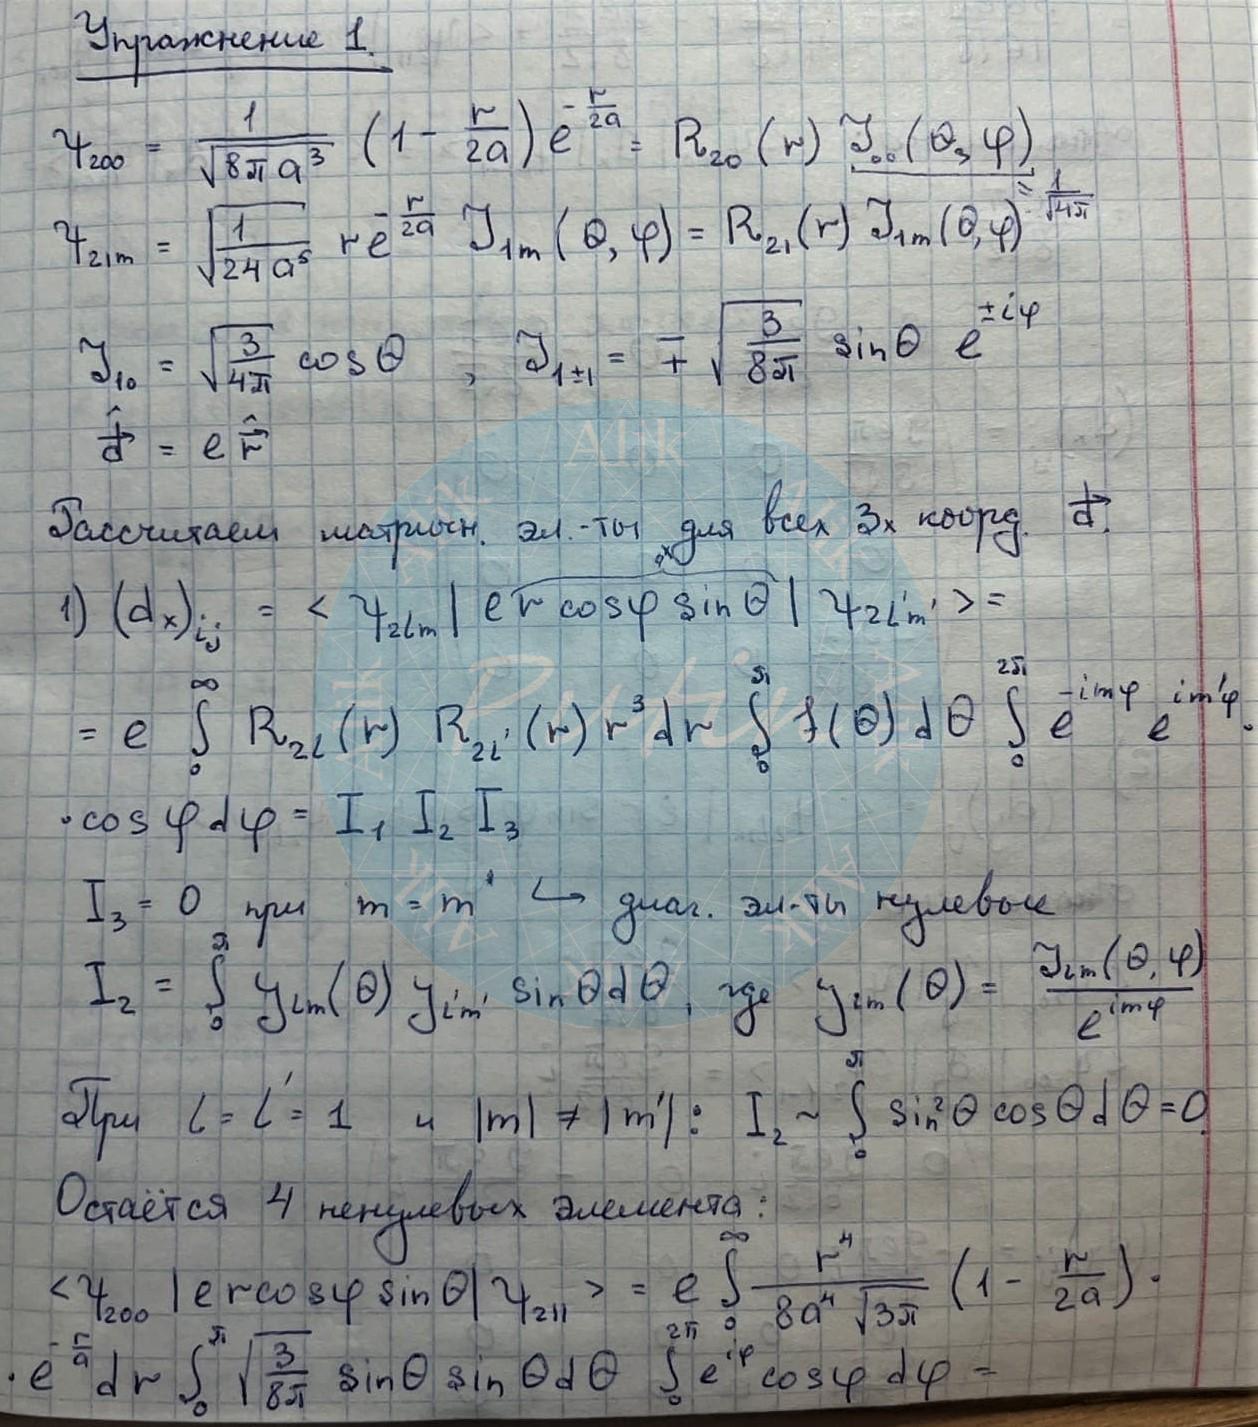 Упражнение 1.
ψ₂₀₀ = 1/√(8πa³) (1 - r/2a) e^(-r/2a) = R₂₀(r) Y₀₀(θ, φ) = 1/√(4π)
ψ₂₁ₘ = √(1/(24a⁵)) r e^(-r/2a) Y₁ₘ(θ, φ) = R₂₁(r) Y₁ₘ(θ, φ)
Y₁₀ = √(3/4π) cosθ , Y₁±₁ = ∓ √(3/8π) sinθ e^(±iφ)
d̂⃗ = e r̂⃗
Рассчитаем матричн. эл.-ты для всех 3х коорд. d⃗.
1) (dₓ)ᵢⱼ = < ψ₂ₗₘ | e r cosφ sinθ | ψ₂ₗ'ₘ' > =
= e ∫₀^∞ R₂ₗ(r) R₂ₗ'(r) r³dr ∫₀^π f(θ)dθ ∫₀^2π e^(-imφ) e^(im'φ) ·
· cosφdφ = I₁ I₂ I₃
I₃ = 0 при m = m' ↪ диаг. эл-ты нулевые
I₂ = ∫₀^π yₗₘ(θ) yₗ'ₘ' sinθdθ, где yₗₘ(θ) = Yₗₘ(θ, φ)/e^(imφ)
При l = l' = 1 и |m| ≠ |m'|: I₂ ~ ∫₀^π sin²θ cosθdθ = 0
Остаётся 4 ненулевых элемента:
<ψ₂₀₀ | e r cosφ sinθ | ψ₂₁₁ > = e ∫₀^∞ r⁴/(8a⁴√(3π)) (1 - r/2a) ·
· e^(-r/a) dr ∫₀^π √(3/8π) sinθ sinθdθ ∫₀^2π e^(iφ) cosφ dφ =